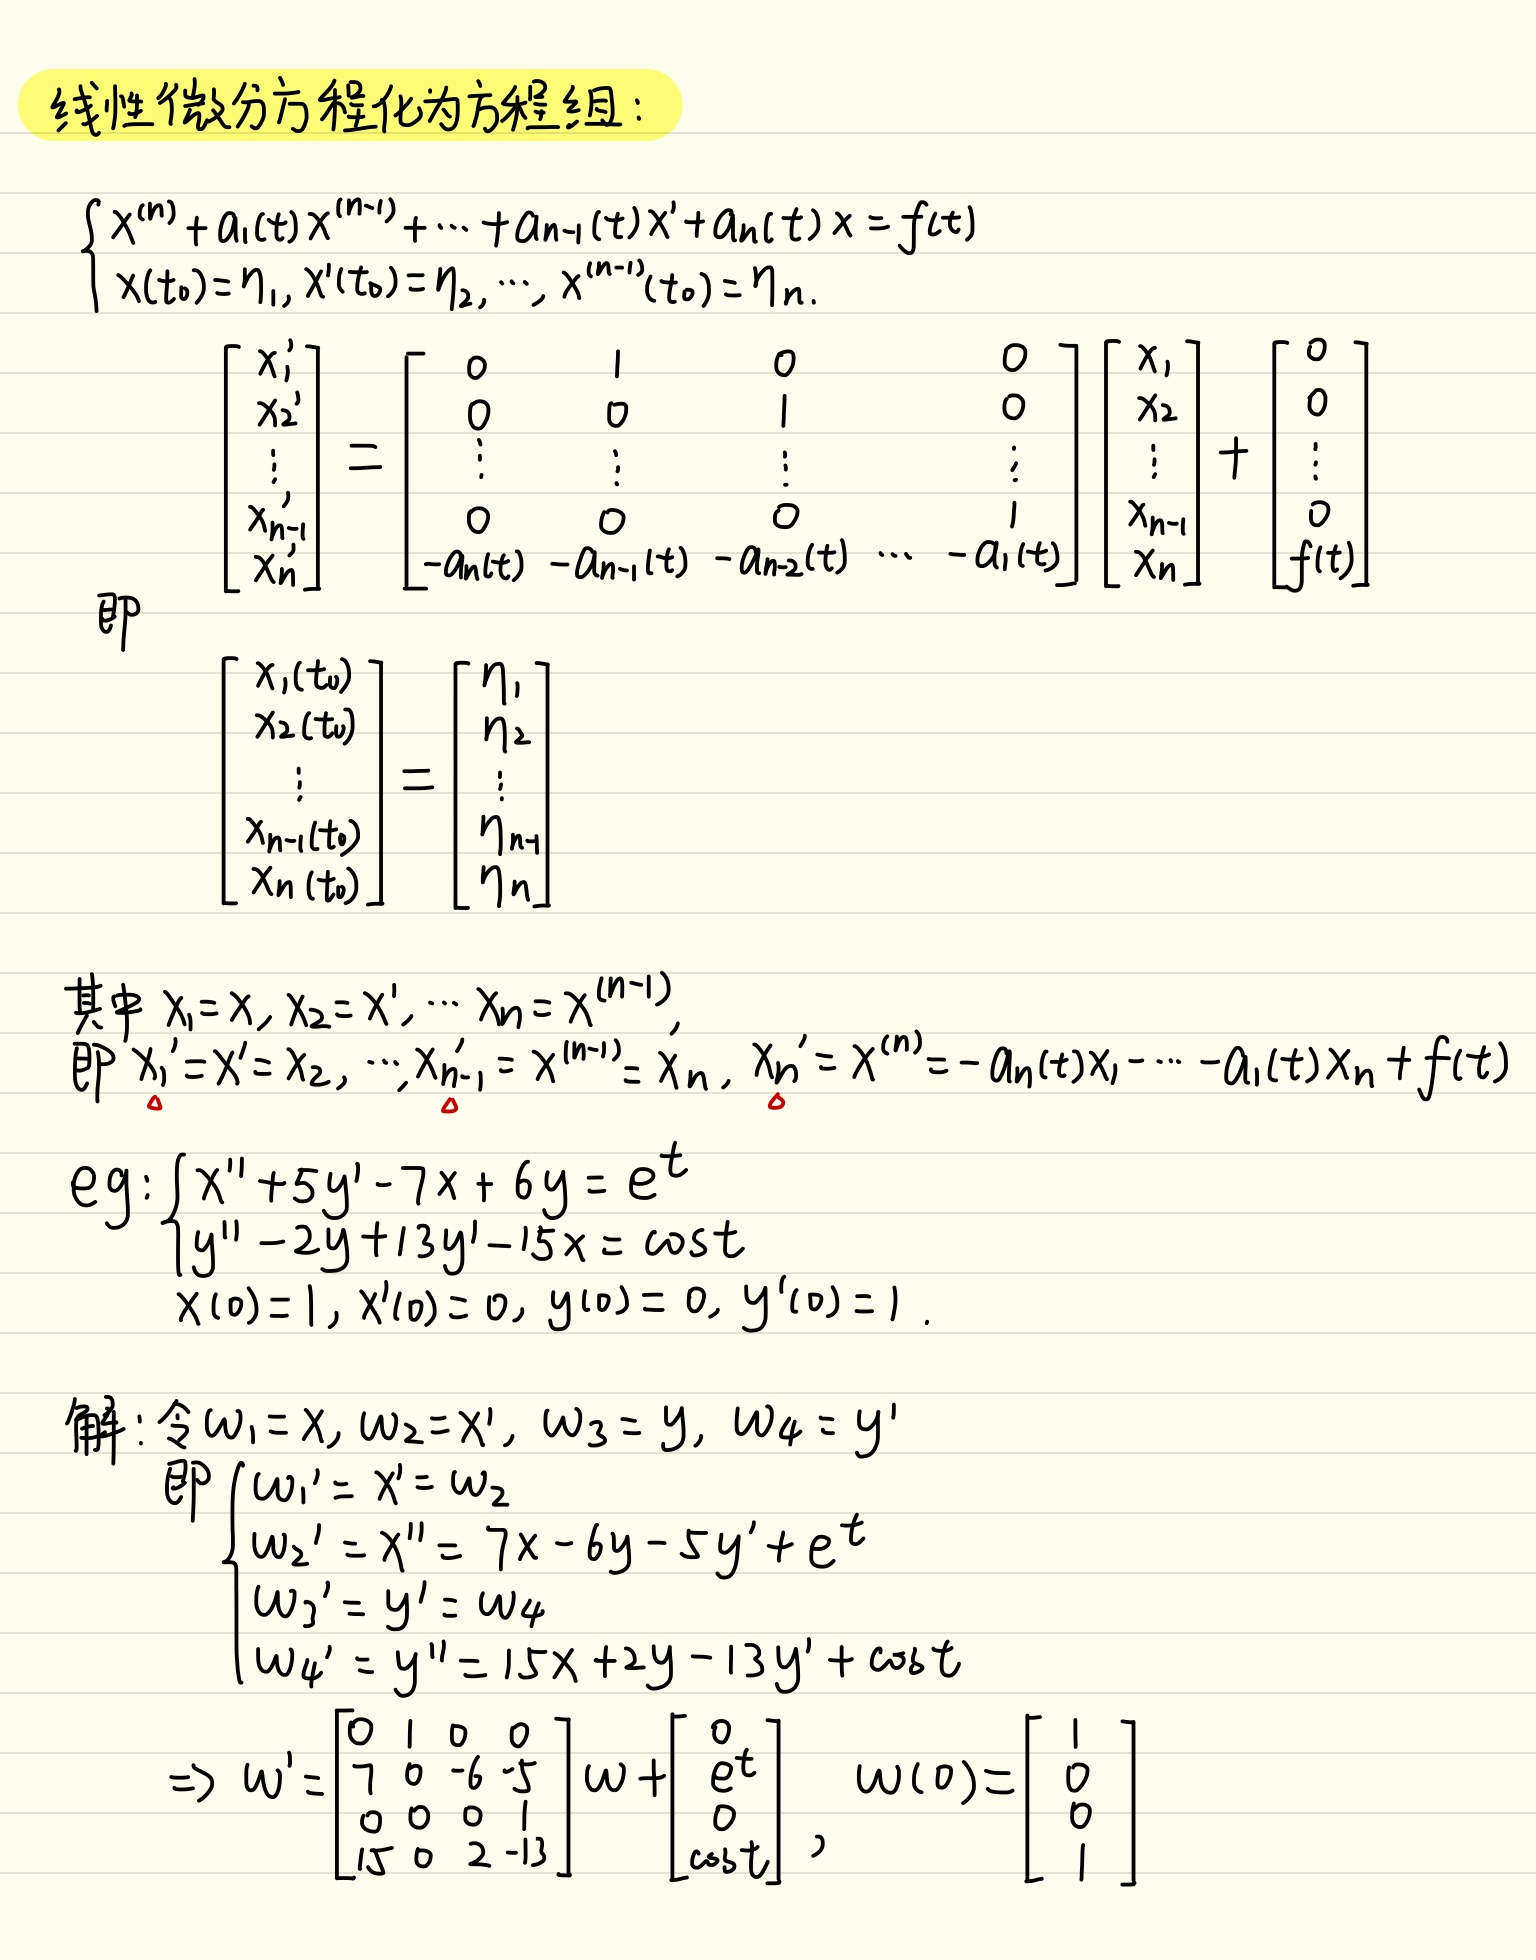 线性微分方程化为方程组:
{ x⁽ⁿ⁾ + a₁(t)x⁽ⁿ⁻¹⁾ + ⋯ + aₙ₋₁(t)x' + aₙ(t)x = f(t)
x(t₀)=η₁, x'(t₀)=η₂, ⋯, x⁽ⁿ⁻¹⁾(t₀)=ηₙ.
[x₁' ; x₂' ; ⋮ ; xₙ₋₁' ; xₙ'] = [0 1 0 0 ; 0 0 1 0 ; ⋮ ⋮ ⋮ ⋮ ; 0 0 0 1 ; -aₙ(t) -aₙ₋₁(t) -aₙ₋₂(t) ⋯ -a₁(t)] [x₁ ; x₂ ; ⋮ ; xₙ₋₁ ; xₙ] + [0 ; 0 ; ⋮ ; 0 ; f(t)]
即
[x₁(t₀) ; x₂(t₀) ; ⋮ ; xₙ₋₁(t₀) ; xₙ(t₀)] = [η₁ ; η₂ ; ⋮ ; ηₙ₋₁ ; ηₙ]
其中 x₁=x, x₂=x', ⋯ xₙ=x⁽ⁿ⁻¹⁾,
即 x₁'=x'=x₂, ⋯, xₙ₋₁'=x⁽ⁿ⁻¹⁾=xₙ, xₙ'=x⁽ⁿ⁾=-aₙ(t)x₁-⋯-a₁(t)xₙ+f(t)
eg: { x''+5y'-7x+6y=eᵗ
y''-2y+13y'-15x=cost
x(0)=1, x'(0)=0, y(0)=0, y'(0)=1.
解: 令w₁=x, w₂=x', w₃=y, w₄=y'
即 { w₁'=x'=w₂
w₂'=x''=7x-6y-5y'+eᵗ
w₃'=y'=w₄
w₄'=y''=15x+2y-13y'+cost
⇒ w'=[0 1 0 0 ; 7 0 -6 -5 ; 0 0 0 1 ; 15 0 2 -13] w+[0 ; eᵗ ; 0 ; cost], w(0)=[1 ; 0 ; 0 ; 1]